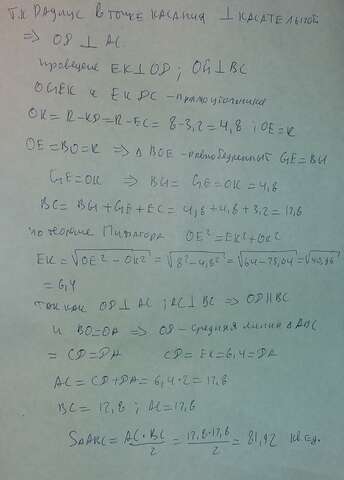 Т.к радиус в точке касания ⊥ касательной
⇒ OD ⊥ AC.
проведем EK⊥OD ; OG⊥BC
OGEK и EKDC - прямоугольники
OK = R-KD = R-EC = 8-3,2 = 4,8 ; OE=R
OE = BO = R ⇒ Δ BOE - равнобедренный GE = BG
GE = OK ⇒ BG = GE = OK = 4,8
BC = BG + GE + EC = 4,8 + 4,8 + 3,2 = 12,8
по теореме Пифагора OE² = EK² + OK²
EK = √OE² - OK² = √8² - 4,8² = √64 - 23,04 = √40,96
= 6,4
так как OD ⊥ AC ; AC ⊥ BC ⇒ OD ∥ BC
и BO=OA ⇒ OD - средняя линия Δ ABC
= CD = DA CD = EK = 6,4 = DA
AC = CD + DA = 6,4 · 2 = 12,8
BC = 12,8 ; AC = 12,8
SΔABC = AC · BC / 2 = 12,8 · 12,8 / 2 = 81,92 кв. ед.